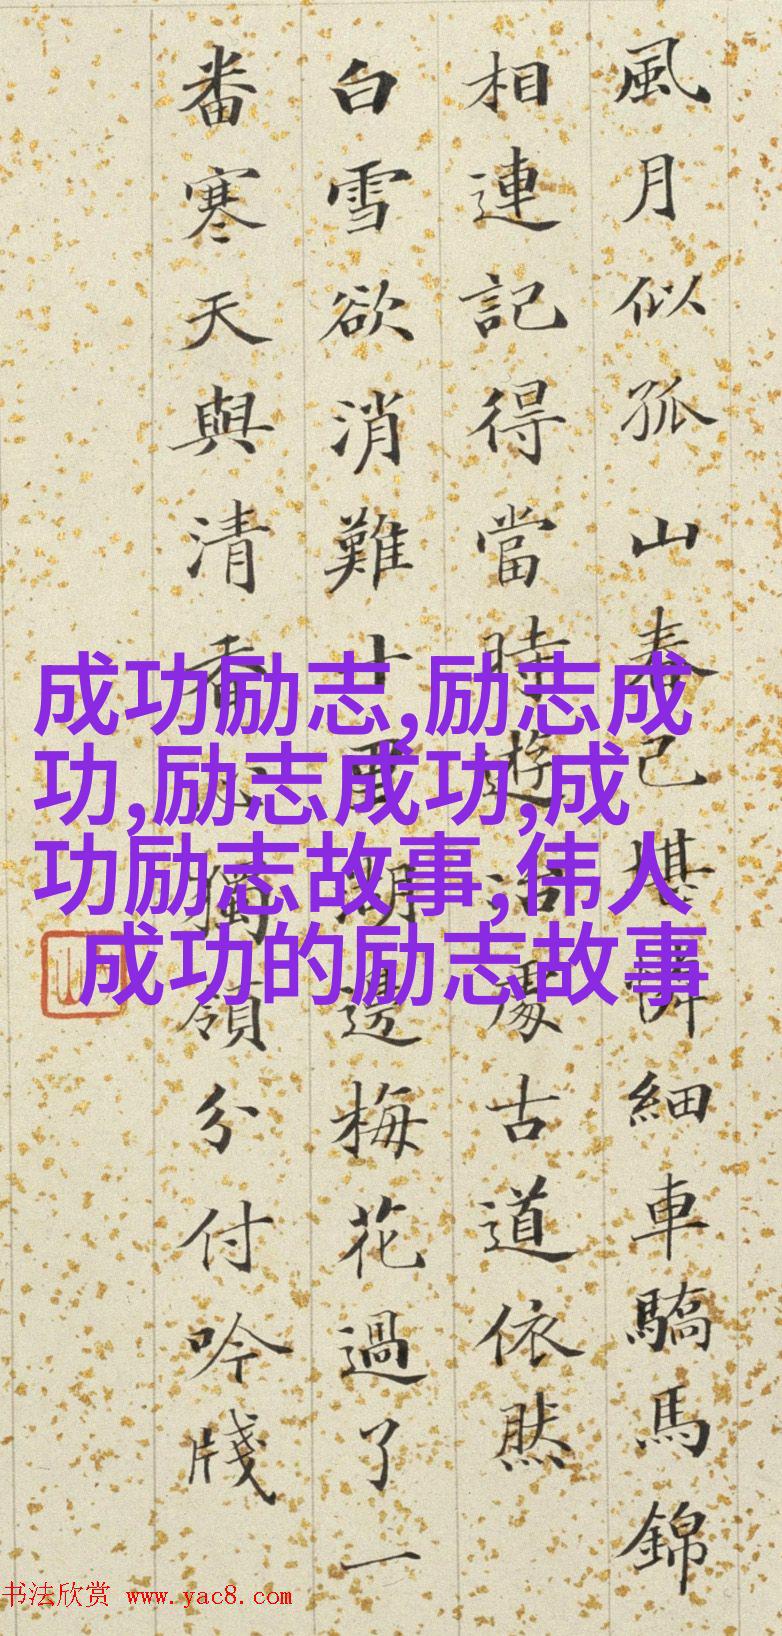 風月似孤山春已堪憐細車驕馬錦
相連記得當時遊冶處古道依然
白雪欲消難十里湖邊梅花過了一
番寒天與清香心獨領分付吟牋
成功励志,励志成
功,励志成功,成
功励志故事,伟人
成功的励志故事
书法欣赏 www.yac8.com